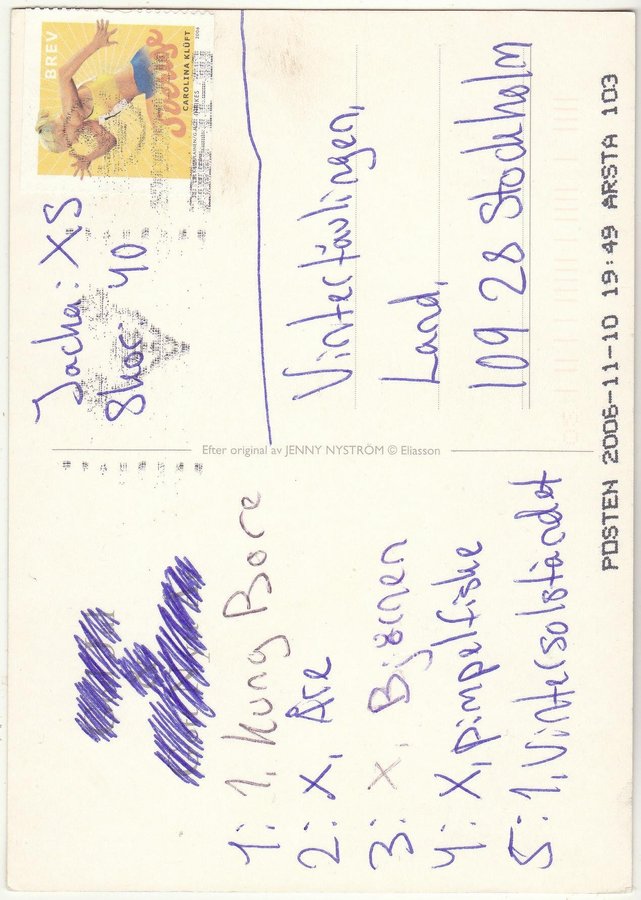 1: 1, Kung Bore
2: X, Åre
3: X, Björnen
4: X, pimpelfiske
5: 1, Vintersolståndet
Efter original av JENNY NYSTRÖM © Eliasson
BREV
Sverige
CAROLINA KLÜFT
2006
Jacka: XS
Skor: 40
Vintertävlingen,
Land,
109 28 Stockholm
POSTEN 2006-11-10 19:49 ÅRSTA 103